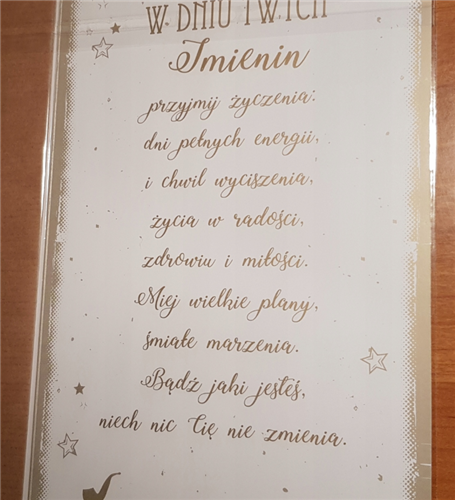 W DNIU TWYCH
Imienin
przyjmij życzenia:
dni pełnych energii,
i chwil wyciszenia,
życia w radości,
zdrowiu i miłości.
Miej wielkie plany,
śmiałe marzenia.
Bądź jaki jesteś,
niech nic Cię nie zmienia.